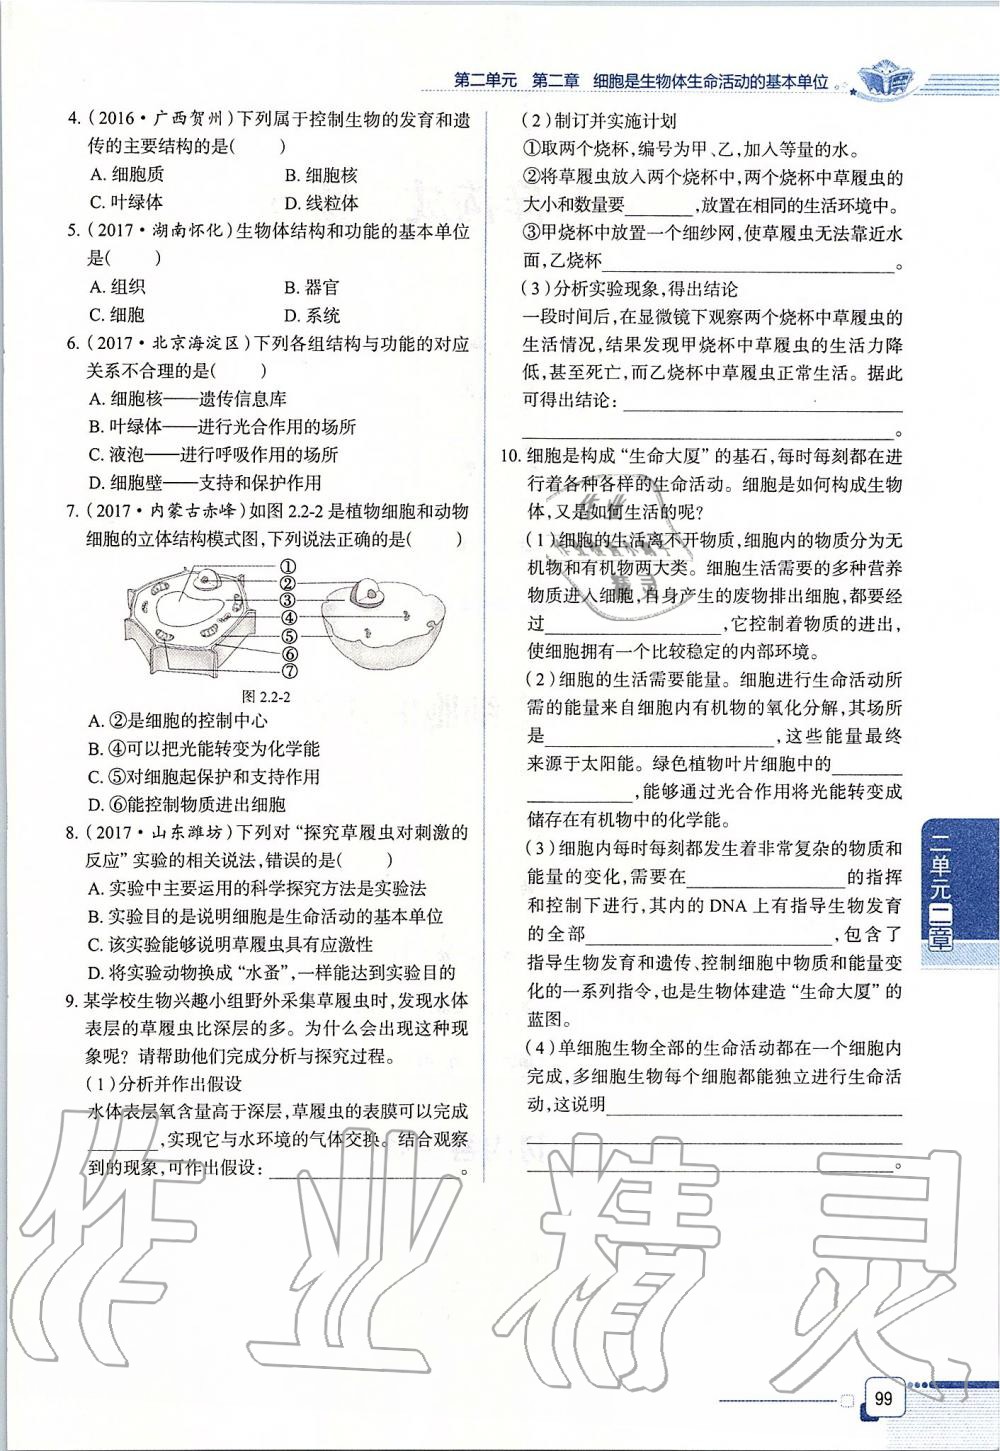 第二单元　第二章　细胞是生物体生命活动的基本单位
4.(2016·广西贺州)下列属于控制生物的发育和遗
传的主要结构的是(　　)
A. 细胞质　　B. 细胞核
C. 叶绿体　　D. 线粒体
5.(2017·湖南怀化)生物体结构和功能的基本单位
是(　　)
A. 组织　　B. 器官
C. 细胞　　D. 系统
6.(2017·北京海淀区)下列各组结构与功能的对应
关系不合理的是(　　)
A. 细胞核——遗传信息库
B. 叶绿体——进行光合作用的场所
C. 液泡——进行呼吸作用的场所
D. 细胞壁——支持和保护作用
7.(2017·内蒙古赤峰)如图2.2-2是植物细胞和动物
细胞的立体结构模式图,下列说法正确的是(　　)
①
②
③
④
⑤
⑥
⑦
图 2.2-2
A. ②是细胞的控制中心
B. ④可以把光能转变为化学能
C. ⑤对细胞起保护和支持作用
D. ⑥能控制物质进出细胞
8.(2017·山东潍坊)下列对“探究草履虫对刺激的
反应”实验的相关说法,错误的是(　　)
A. 实验中主要运用的科学探究方法是实验法
B. 实验目的是说明细胞是生命活动的基本单位
C. 该实验能够说明草履虫具有应激性
D. 将实验动物换成“水蚤”,一样能达到实验目的
9. 某学校生物兴趣小组野外采集草履虫时,发现水体
表层的草履虫比深层的多。为什么会出现这种现
象呢？请帮助他们完成分析与探究过程。
(1)分析并作出假设
水体表层氧含量高于深层,草履虫的表膜可以完成
______,实现它与水环境的气体交换。结合观察
到的现象,可作出假设：________________。
(2)制订并实施计划
①取两个烧杯,编号为甲、乙,加入等量的水。
②将草履虫放入两个烧杯中,两个烧杯中草履虫的
大小和数量要______,放置在相同的生活环境中。
③甲烧杯中放置一个细纱网,使草履虫无法靠近水
面,乙烧杯__________________________。
(3)分析实验现象,得出结论
一段时间后,在显微镜下观察两个烧杯中草履虫的
生活情况,结果发现甲烧杯中草履虫的生活力降
低,甚至死亡,而乙烧杯中草履虫正常生活。据此
可得出结论：________________________
________________________________。
10. 细胞是构成“生命大厦”的基石,每时每刻都在进
行着各种各样的生命活动。细胞是如何构成生物
体,又是如何生活的呢？
(1)细胞的生活离不开物质,细胞内的物质分为无
机物和有机物两大类。细胞生活需要的多种营养
物质进入细胞,自身产生的废物排出细胞,都要经
过________________,它控制着物质的进出,
使细胞拥有一个比较稳定的内部环境。
(2)细胞的生活需要能量。细胞进行生命活动所
需的能量来自细胞内有机物的氧化分解,其场所
是____________________,这些能量最终
来源于太阳能。绿色植物叶片细胞中的______
__________,能够通过光合作用将光能转变成
储存在有机物中的化学能。
(3)细胞内每时每刻都发生着非常复杂的物质和
能量的变化,需要在______________的指挥
和控制下进行,其内的DNA上有指导生物发育
的全部______________________,包含了
指导生物发育和遗传、控制细胞中物质和能量变
化的一系列指令,也是生物体建造“生命大厦”的
蓝图。
(4)单细胞生物全部的生命活动都在一个细胞内
完成,多细胞生物每个细胞都能独立进行生命活
动,这说明__________________________
________________________________
________________________________。
二单元二章
99
作业精灵